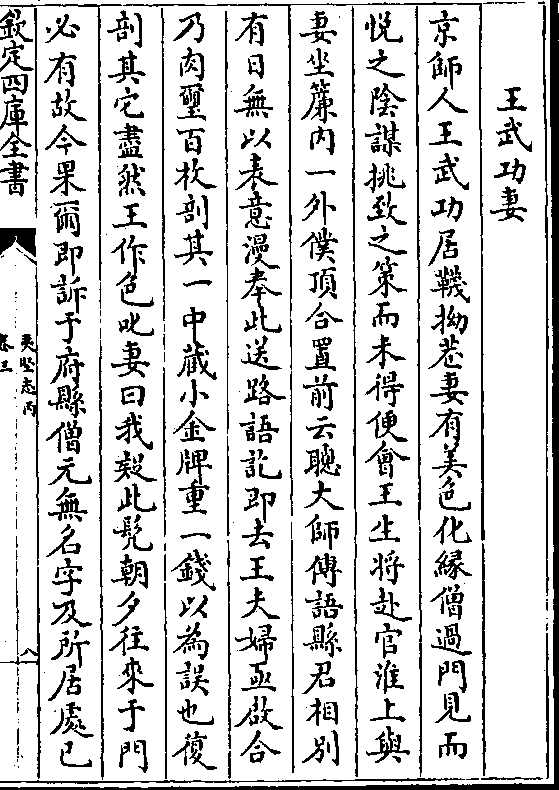 王武功妻
京師人王武功居韈拗巷妻有美色化縁僧過門見而
悦之陰謀挑致之策而未得便會王生將赴官淮上與
妻坐簾内一外僕頂合置前云聰大師傳語縣君相别
有日無以表意漫奉此送路語訖即去王夫婦亟啟合
乃肉璽百枚剖其一中藏小金牌重一錢以為誤也復
剖其它盡然王作色叱妻曰我疑此髠朝夕往來于門
必有故今果爾即訴于府縣僧元無名字及所居處已
欽定四庫全書
夷堅志丙
卷三
八